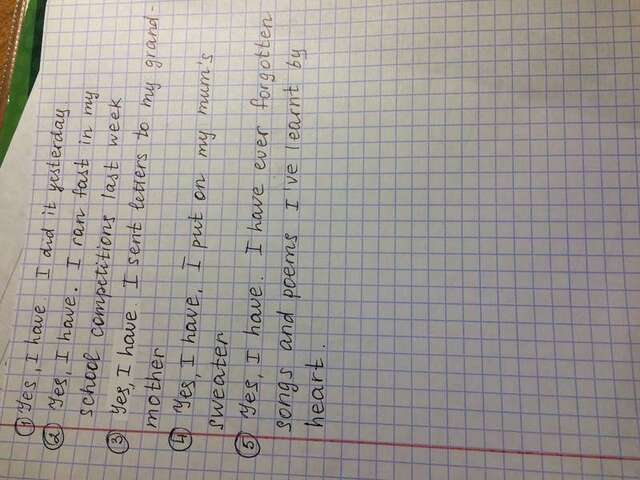 ① Yes, I have. I did it yesterday
② Yes, I have. I ran fast in my
school competitions last week
③ Yes, I have. I sent letters to my grand-
mother
④ Yes, I have. I put on my mum's
sweater
⑤ Yes, I have. I have ever forgotten
songs and poems I've learnt by
heart.